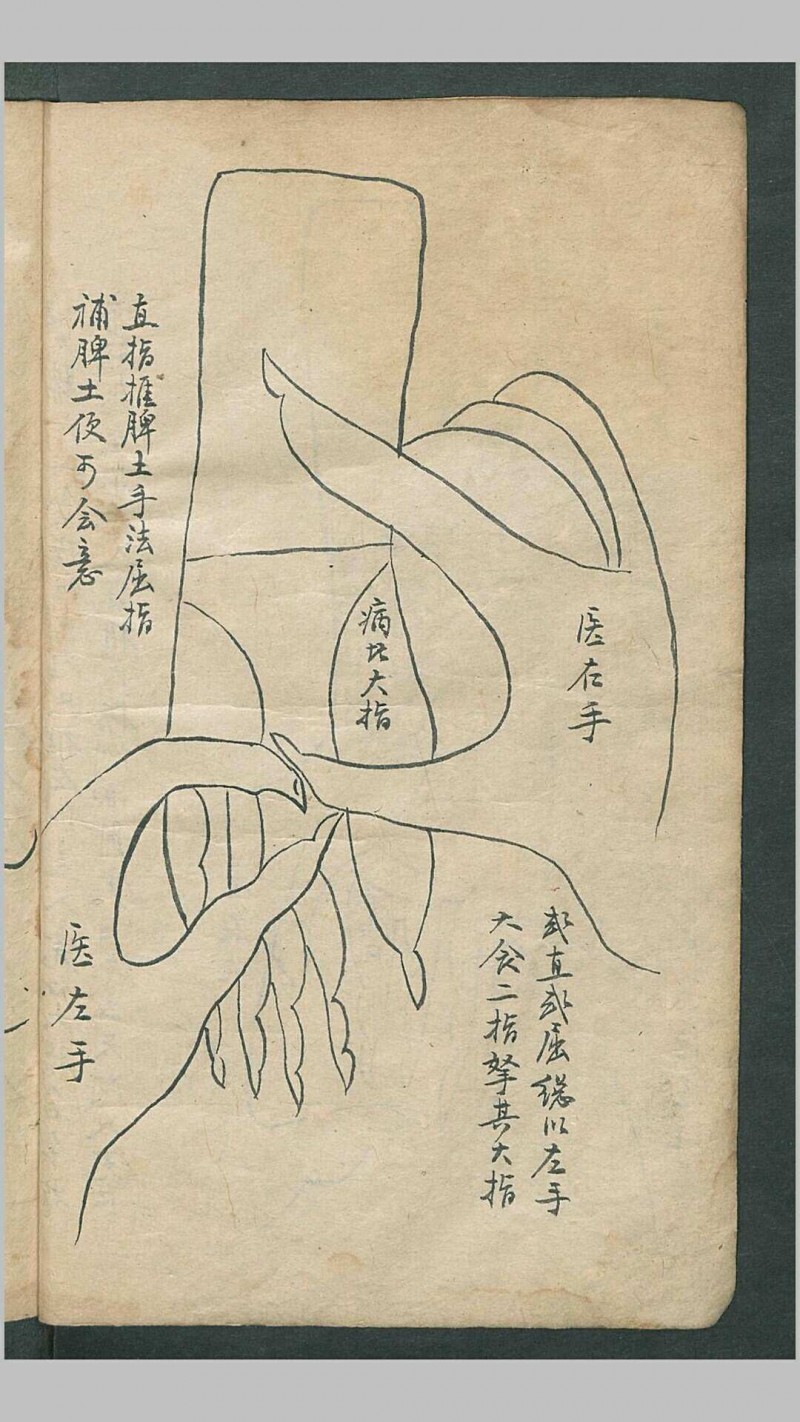 或直或屈總以左手
大食二指拏其大指
医右手
病此大指
直指推脾土手法屈指
補脾土便可会意
医左手